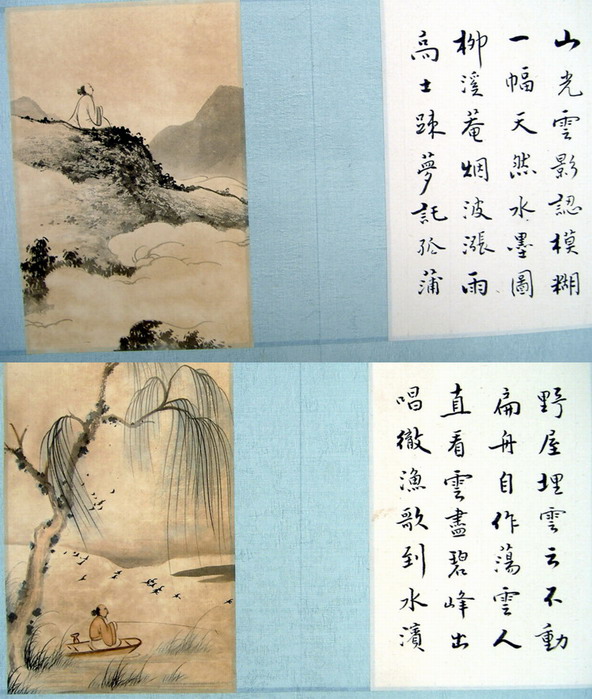 山光雲影認模糊
一幅天然水墨圖
柳溪菴烟波漲雨
高士踈夢託菰蒲
野屋埋雲云不動
扁舟自作蕩雲人
直看雲盡碧峰出
唱徹漁歌到水濱